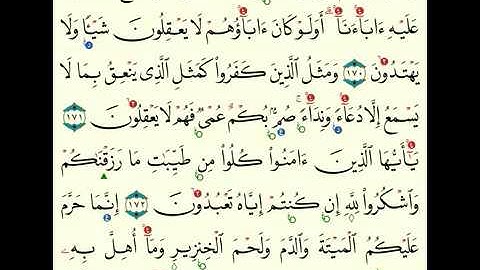 عَلَيْهِ ءَابَآءَنَآ أَوَلَوْ كَانَ ءَابَآؤُهُمْ لَا يَعْقِلُونَ شَيْـًٔا وَلَا
يَهْتَدُونَ ١٧٠ وَمَثَلُ ٱلَّذِينَ كَفَرُوا۟ كَمَثَلِ ٱلَّذِى يَنْعِقُ بِمَا لَا
يَسْمَعُ إِلَّا دُعَآءً وَنِدَآءً ۚ صُمٌّۢ بُكْمٌ عُمْىٌ فَهُمْ لَا يَعْقِلُونَ ١٧١
يَـٰٓأَيُّهَا ٱلَّذِينَ ءَامَنُوا۟ كُلُوا۟ مِن طَيِّبَـٰتِ مَا رَزَقْنَـٰكُمْ
وَٱشْكُرُوا۟ لِلَّهِ إِن كُنتُمْ إِيَّاهُ تَعْبُدُونَ ١٧٢ إِنَّمَا حَرَّمَ
عَلَيْكُمُ ٱلْمَيْتَةَ وَٱلدَّمَ وَلَحْمَ ٱلْخِنزِيرِ وَمَآ أُهِلَّ بِهِۦ